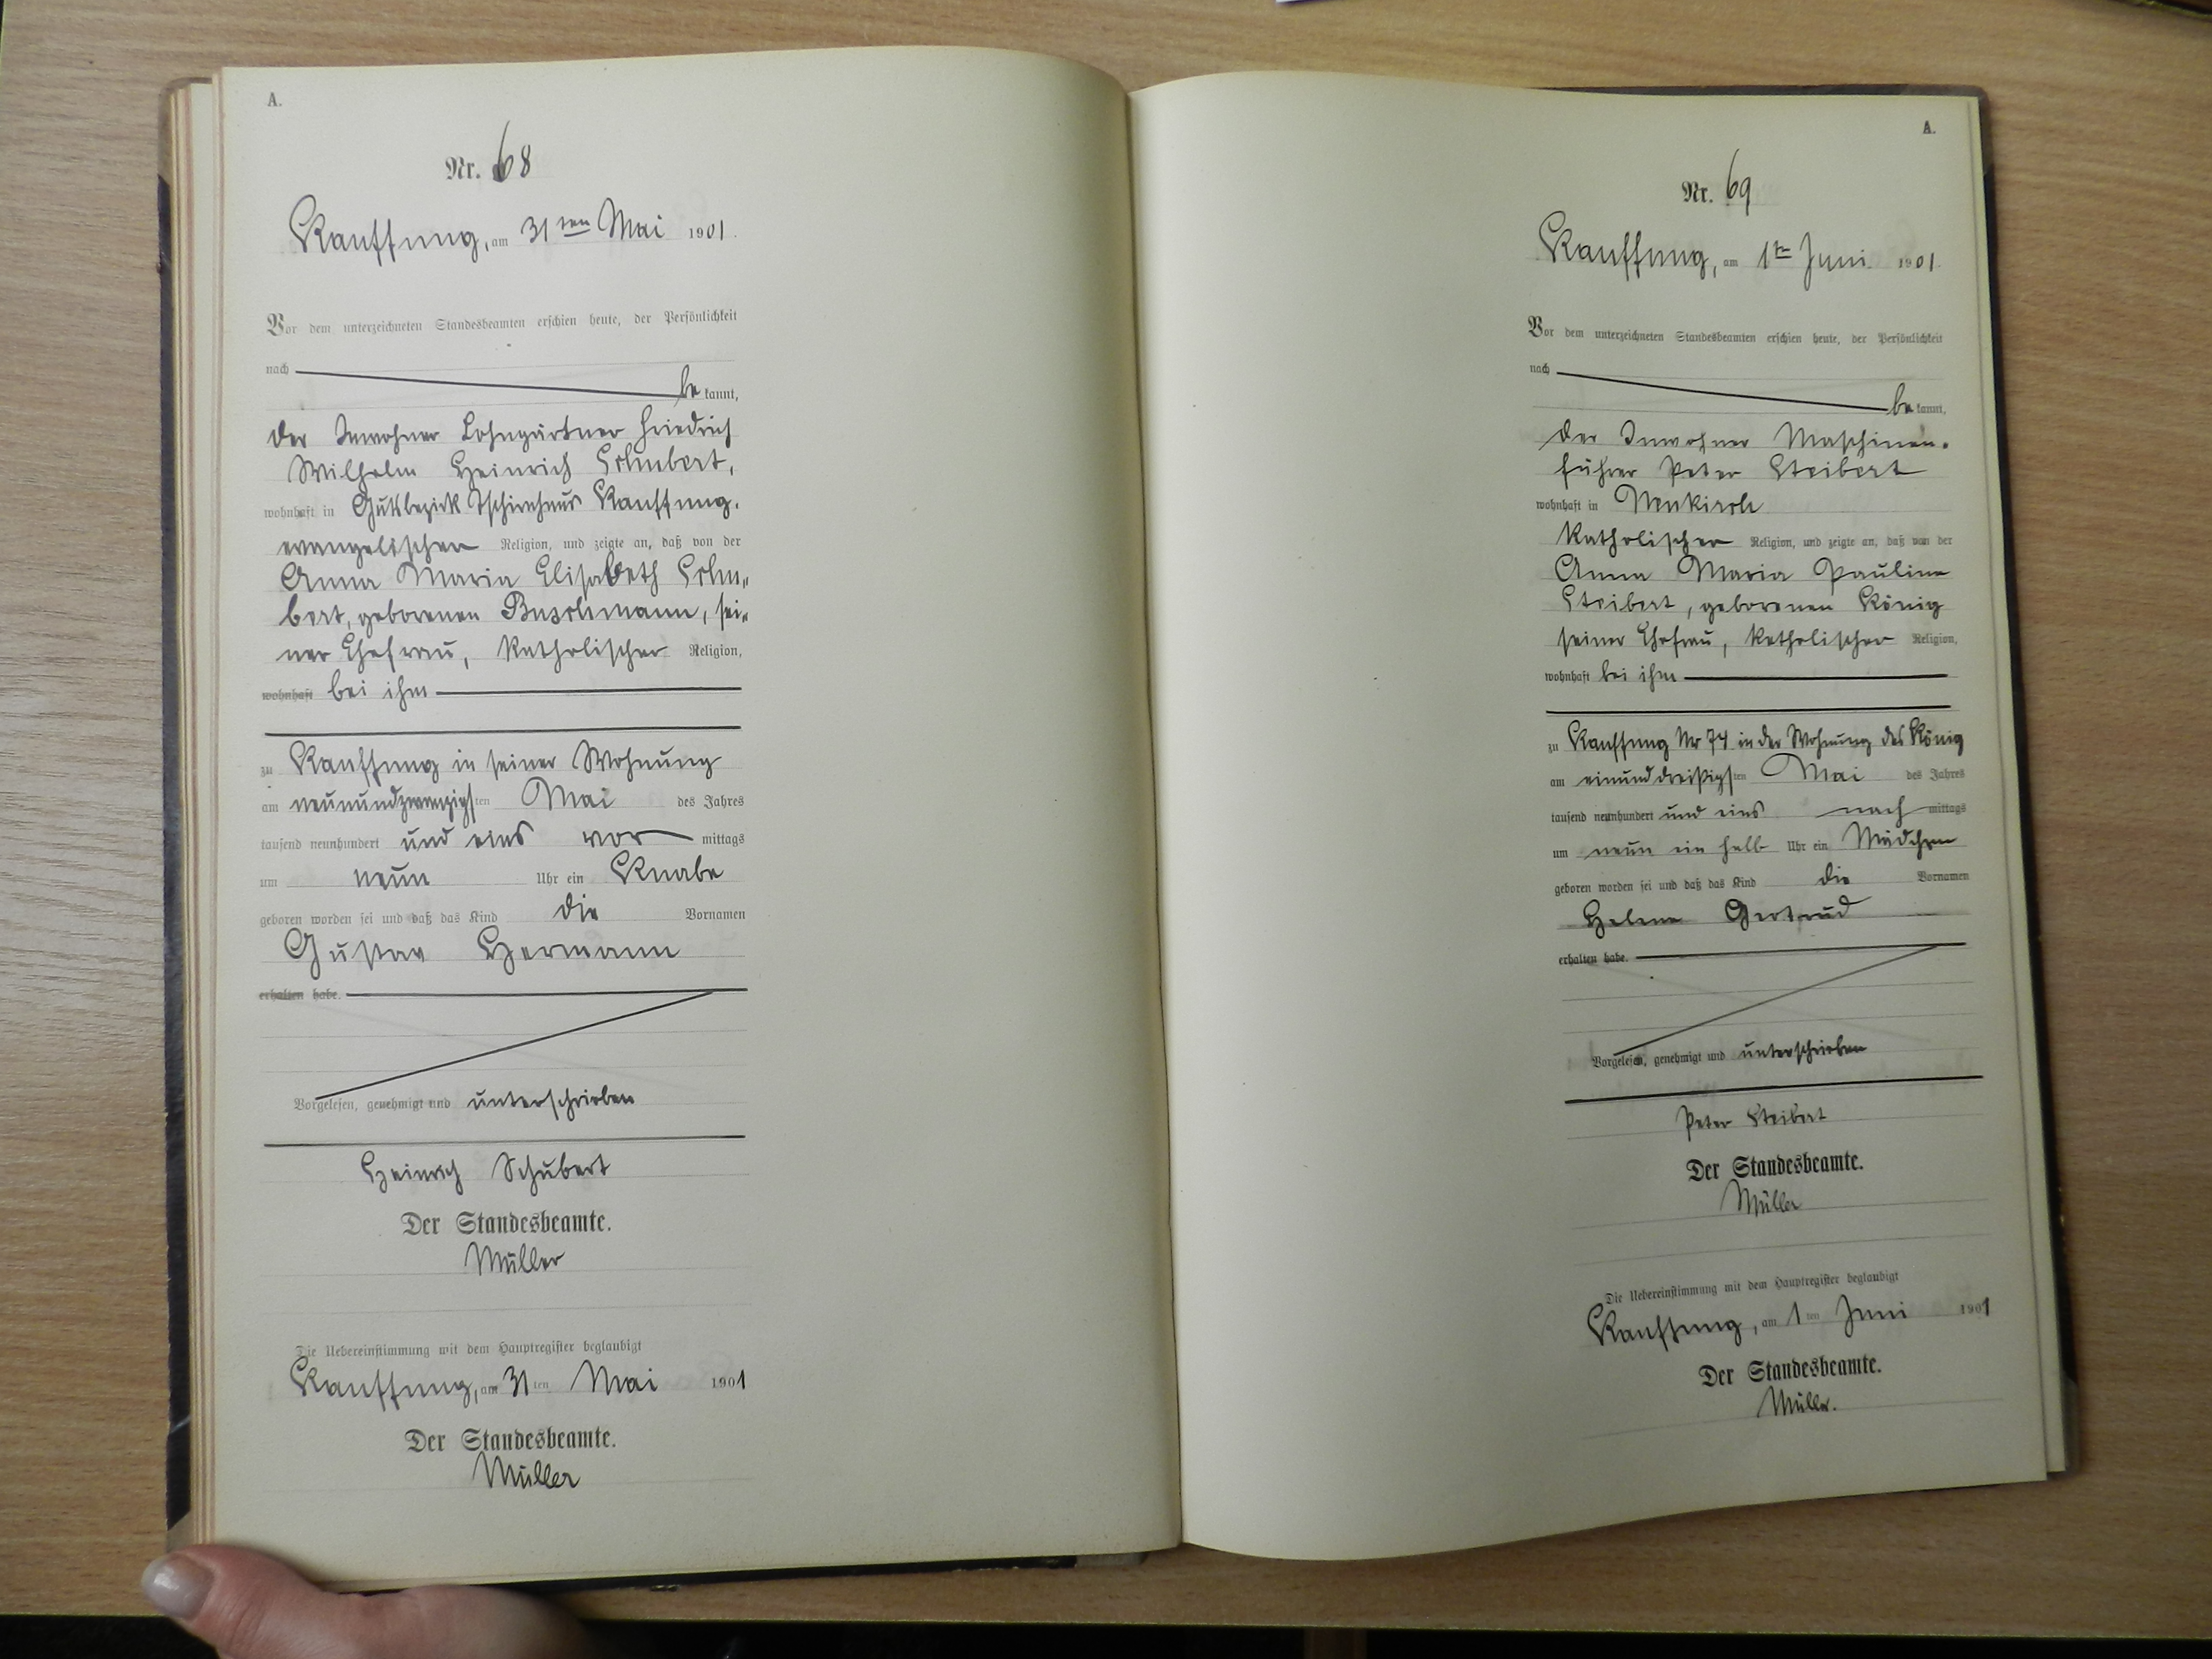 A.
Nr. 68
Kauffung, am 31ten Mai 1901.
Vor dem unterzeichneten Standesbeamten erschien heute, der Persönlichkeit
nach
be kannt,
der Inwohner Lohngärtner Friedrich
Wilhelm Heinrich Schubert,
wohnhaft in Gutsbezirk Tschirnhaus Kauffung,
evangelischer Religion, und zeigte an, daß von der
Anna Maria Elisabeth Schu-
bert, geborenen Buschmann, sei-
ner Ehefrau, katholischer Religion,
wohnhaft bei ihm
zu Kauffung in seiner Wohnung
am neunundzwanzigsten Mai des Jahres
tausend neunhundert und eins vor mittags
um neun Uhr ein Knabe
geboren worden sei und daß das Kind die Vornamen
Gustav Hermann
erhalten habe.
Vorgelesen, genehmigt und unterschrieben
Heinrich Schubert
Der Standesbeamte.
Müller
Die Uebereinstimmung mit dem Hauptregister beglaubigt
Kauffung, am 31ten Mai 1901
Der Standesbeamte.
Müller
A.
Nr. 69
Kauffung, am 1ten Juni 1901.
Vor dem unterzeichneten Standesbeamten erschien heute, der Persönlichkeit
nach
be kannt,
der Inwohner Maschinen-
führer Peter Steibert
wohnhaft in Neukirch
katholischer Religion, und zeigte an, daß von der
Anna Maria Pauline
Steibert, geborenen König
seiner Ehefrau, katholischer Religion,
wohnhaft bei ihm
zu Kauffung Nr 74 in der Wohnung des König
am einunddreißigsten Mai des Jahres
tausend neunhundert und eins nach mittags
um neun ein halb Uhr ein Mädchen
geboren worden sei und daß das Kind die Vornamen
Helene Gertrud
erhalten habe.
Vorgelesen, genehmigt und unterschrieben
Peter Steibert
Der Standesbeamte.
Müller
Die Uebereinstimmung mit dem Hauptregister beglaubigt
Kauffung, am 1ten Juni 1901
Der Standesbeamte.
Müller.